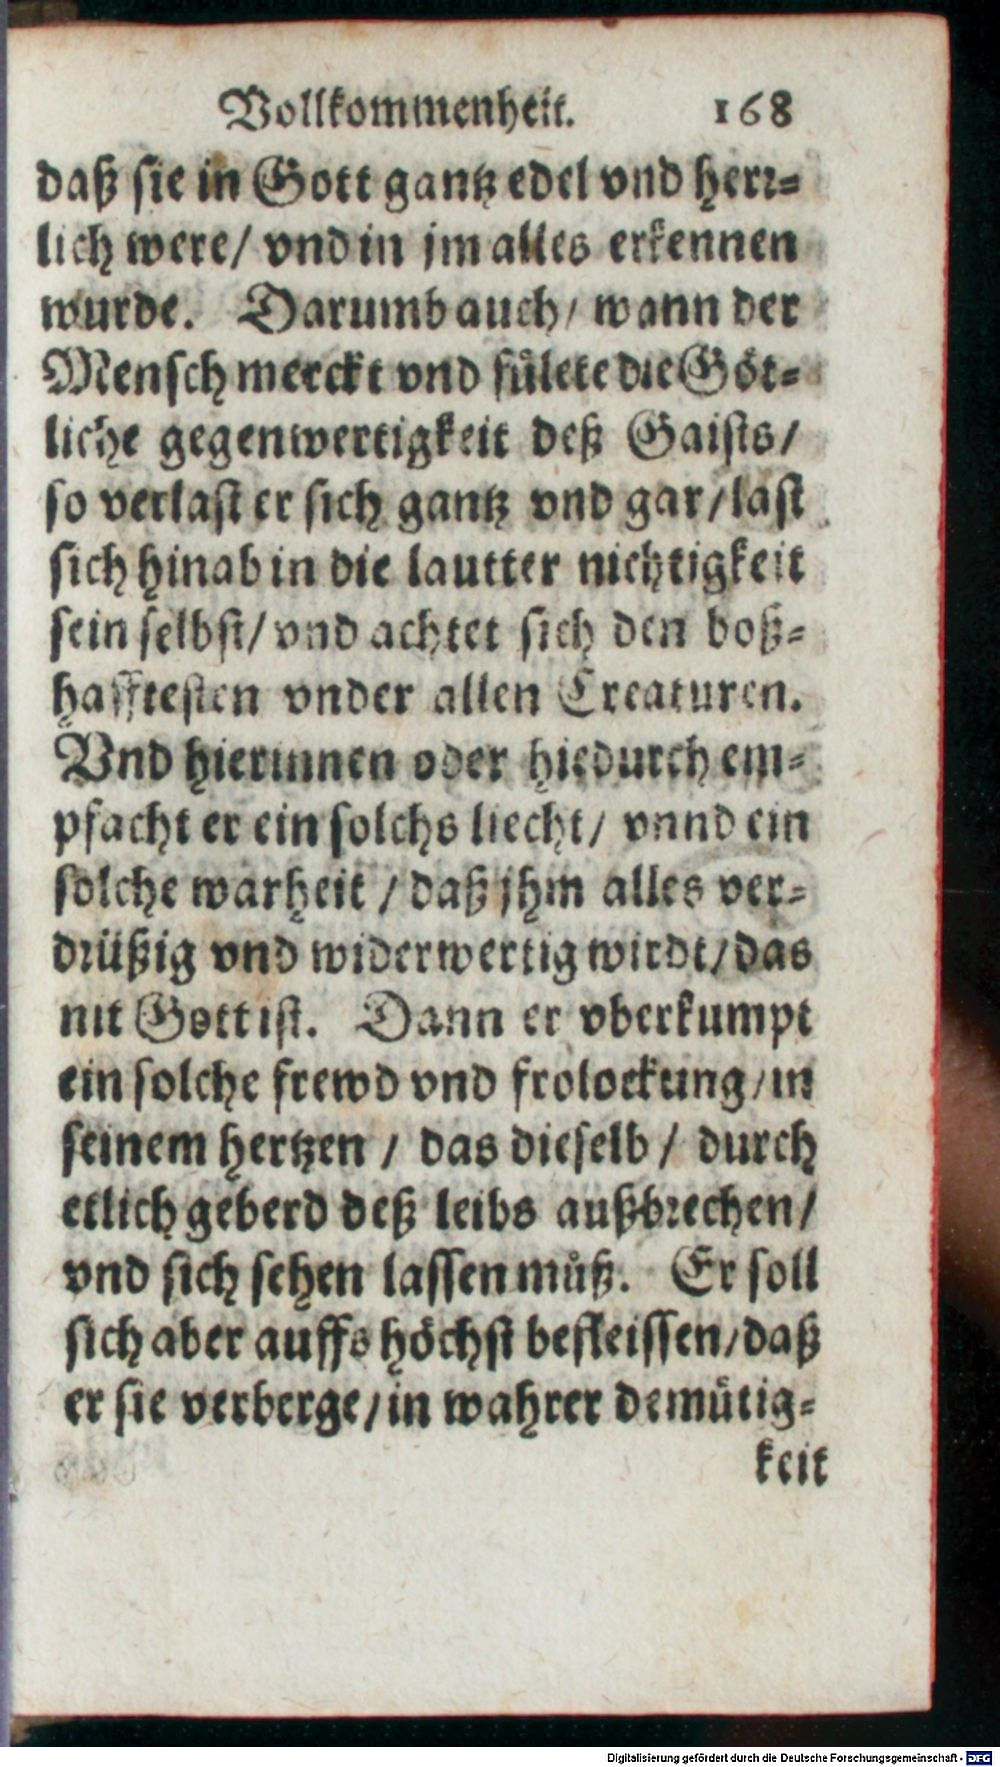 Vollkommenheit. 168
daß sie in Gott gantz edel vnd herr-
lich were/ vnd in jm alles erkennen
wurde. Darumb auch/ wann der
Mensch merckt vnd fülete die Göt-
liche gegenwertigkeit deß Gaists/
so verlast er sich gantz vnd gar/ last
sich hinab in die lautter nichtigkeit
sein selbst/ vnd achtet sich den boß-
hafftesten vnder allen Creaturen.
Vnd hierinnen oder hiedurch em-
pfacht er ein solchs liecht/ vnnd ein
solche warheit / daß jhm alles ver-
drüßig vnd widerwertig wirdt/ das
nit Gott ist. Dann er vberkumpt
ein solche frewd vnd frolockung/ in
seinem hertzen / das dieselb / durch
etlich geberd deß leibs außbrechen/
vnd sich sehen lassen můß. Er soll
sich aber auffs höchst befleissen/ daß
er sie verberge/ in wahrer demütig-
keit
Digitalisierung gefördert durch die Deutsche Forschungsgemeinschaft - DFG